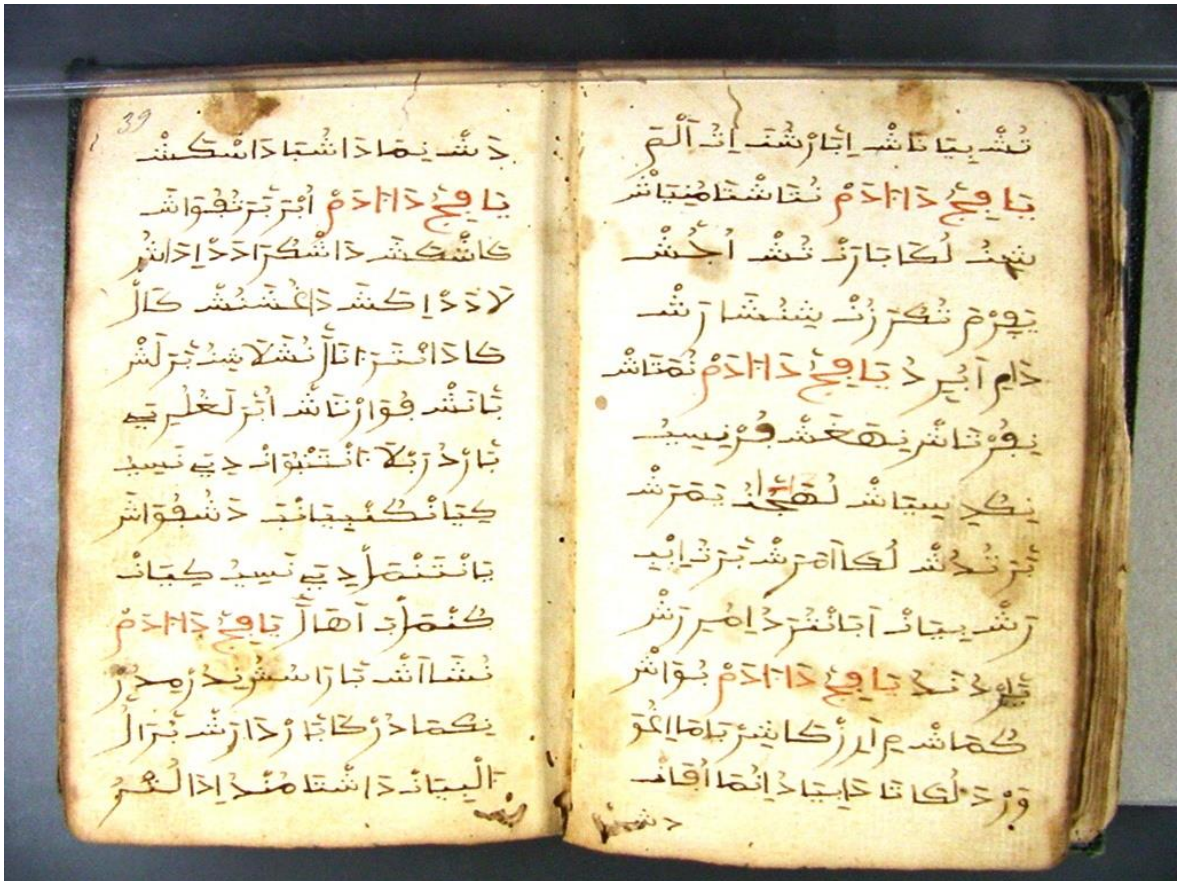 تُشْ بِيَانَاشْ اِبَارْشُنَ اِنْ اَلْمَ
يَا فِجُ دَا ءَادَمْ نُتَاشْتَا مُنِيَاشْ
شِنُ لُكَا بَارَنْ تُشْ اُجُشْ
يَفِرْمَ تُكَرَزُنْ شِنُشَارَشْ
دَامِ اَبُرِدُ يَا فِجُ دَا ءَادَمْ نُمَتَاشْ
نِفُرْتَاشْ نِهَغَشْ فُرْنِسِيُ
نِكُدِسِيَاشْ يَمَرَشْ
بَرَ تُدُشْ لُكَا اَمَرَشْ بَرَ تُ اِبِبِ
رَشْ بِيَانْ اَبَانْتُرَدُ اِمُرِرَشْ
بَارْدُنَدُ يَا فِجُ دَا ءَادَمْ بُوَاشْ
كُمَاشْ مِ اَرَزْكَا شِرْبَامَا اِغُوَ
وَرْدَ لُكَاتَا دَابِيَادُ اِنُمَا اُفَانْ
39
دَشْ نِمَادَاشُبَادَاسْكَشْ
يَا فِجُ دَا ءَادَمْ اُبْرَ بَرَ تُفُوَاشَ
كَاشْكَشَ دَاشْكُرَادَدْ اِدَاشُ
لَادَدْ اِكَشَ دَاغُشَنُشْ كَالَّ
كَادَانْتَرَ ءَانَالَّ نُشَلَاشِنُ بَرَ لَشْ
بَانَشْ فُوَارْتَاشْ اُبْرَ لَغُلُرِيَ
بَارْدُرَبْلَا ءَانْتَنْبُوَانْ دِيَ نَسِيُ
كِيَانْ كُنْبِيَانْتَ دَشُفُوَاشَ
بَانْتَنْمَلْ دِيَ نَسِيُ كِيَانْ
كُنْمَلْتَ اَهَالَّ يَا فِجُ دَا ءَادَمْ
نُشَا اَشْ بَارَا
نِكُمَادُرْ كَابَارْدَارَشْ بَرَ اَلُ
ءَالْبِيَانْ دَاشْتَا مُنْدُ اِدَا لُتُرُ